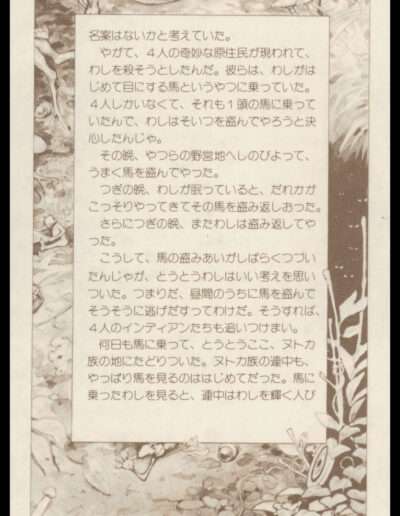 名案はないかと考えていた。
やがて、4人の奇妙な原住民が現われて、
わしを殺そうとしたんだ。彼らは、わしがは
じめて目にする馬というやつに乗っていた。
4人しかいなくて、それも1頭の馬に乗って
いたんで、わしはそいつを盗んでやろうと決
心したんじゃ。
その晩、やつらの野営地へしのびよって、
うまく馬を盗んでやった。
つぎの晩、わしが眠っていると、だれかが
こっそりやってきてその馬を盗み返しおった。
さらにつぎの晩、またわしは盗み返してや
った。
こうして、馬の盗みあいがしばらくつづい
たんじゃが、とうとうわしはいい考えを思い
ついた。つまりだ、昼間のうちに馬を盗んで
そうそうに逃げだすってわけだ。そうすれば、
4人のインディアンたちも追いつけまい。
何日も馬に乗って、とうとうここ、ヌトカ
族の地にたどりついた。ヌトカ族の連中も、
やっぱり馬を見るのははじめてだった。馬に
乗ったわしを見ると、連中はわしを輝く人び